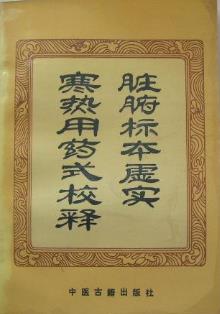 脏腑标本虚实
寒热用药式校释
中医古籍出版社